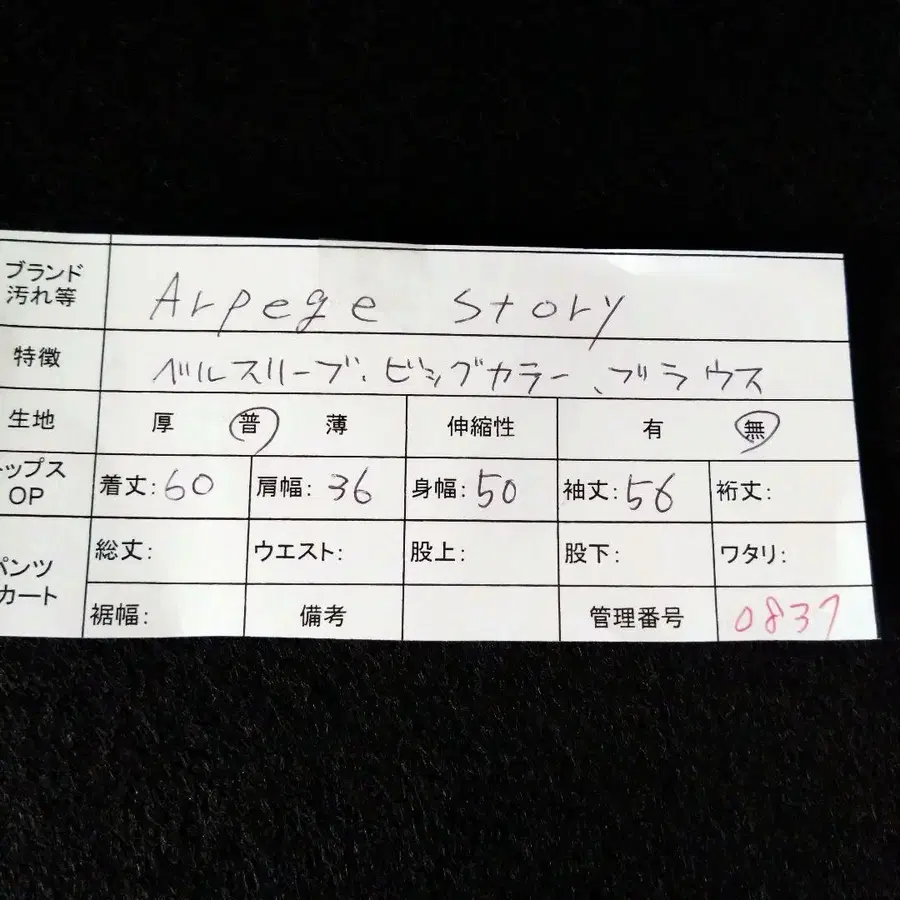 ブランド
汚れ等
Arpege story
特徴
ベルスリーブ、ビッグカラー、ブラウス
生地 厚 普 薄 伸縮性 有 無
トップス
OP
着丈:60 肩幅:36 身幅:50 袖丈:56 裄丈:
パンツ
カート
総丈: ウエスト: 股上: 股下: ワタリ:
裾幅: 備考 管理番号 0837